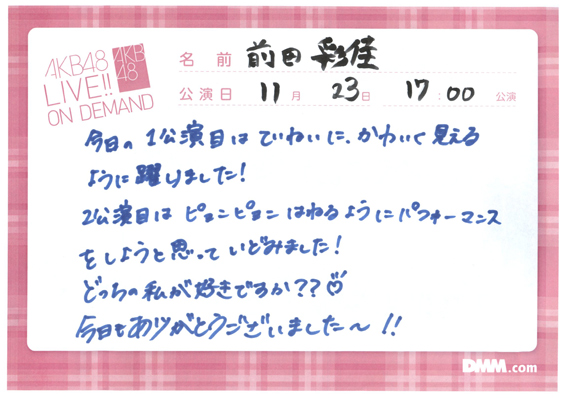 AKB48
LIVE!!
ON DEMAND
AKB
48
名前 前田彩佳
公演日 11月 23日 17:00 公演
今日の1公演目はていねいに、かわいく見える
ように躍りました!
2公演目はピョンピョンはねるようにパフォーマンス
をしようと思っていどみました!
どっちの私が好きですか??♡
今日もありがとうございました〜!!
DMM.com